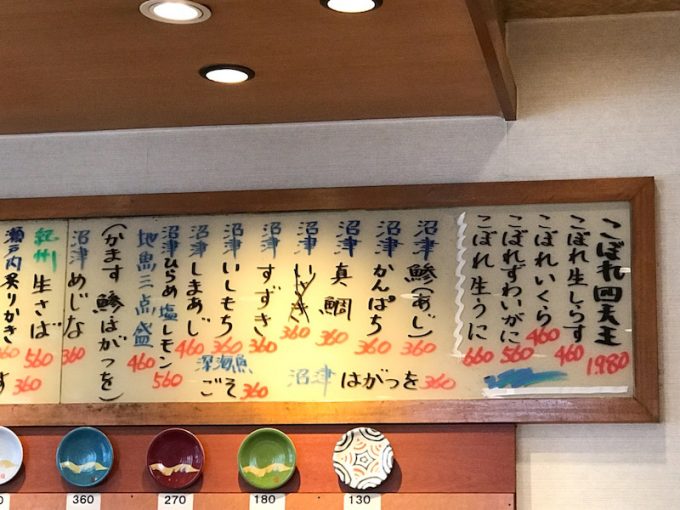 こぼれ四天王
1980
こぼれ生しらす
460
こぼれいくら
460
こぼれずわいがに
560
こぼれ生うに
660
沼津 鯵(あじ)
360
沼津 かんぱち
360
沼津 真鯛
360
沼津
360
沼津 すずき
360
沼津 いしもち
360
沼津 しまあじ
460
沼津ひらめ塩レモン
560
地魚三点盛
460
(かます 鯵 はがつを)
沼津 めじな
360
紀州 生さば
560
瀬戸内炙りかき
沼津 はがつを
360
深海魚
ごそ
360
す
360
360
270
180
130